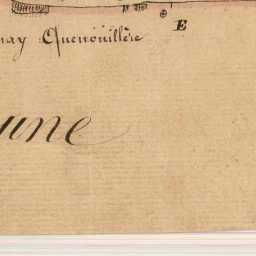 E
nay Quenouillère
une